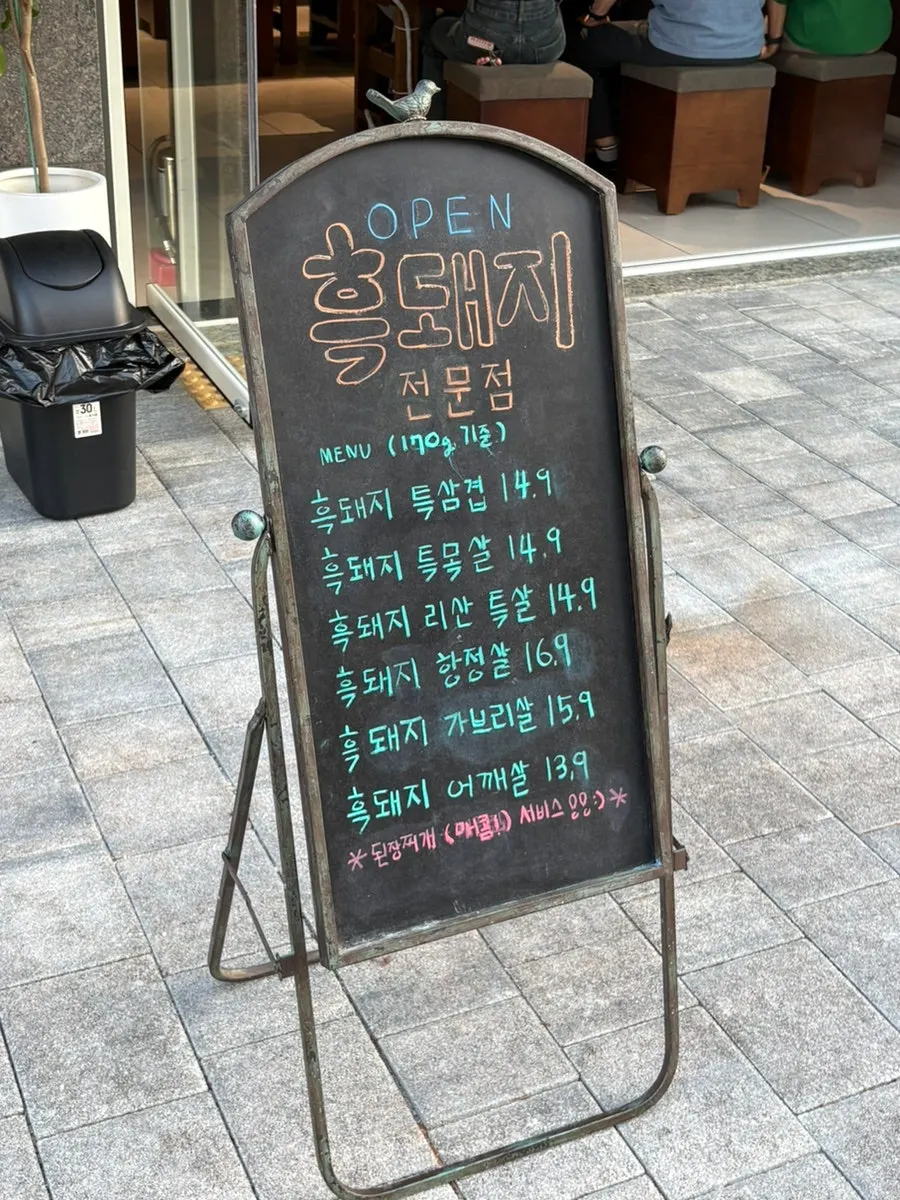 OPEN
흑돼지
전문점
MENU (170g 기준)
흑돼지 특삼겹 14.9
흑돼지 특목살 14.9
흑돼지 리산 특살 14.9
흑돼지 항정살 16.9
흑돼지 가브리살 15.9
흑돼지 어깨살 13.9
*된장찌개 (매콤!) 서비스 :) *
30